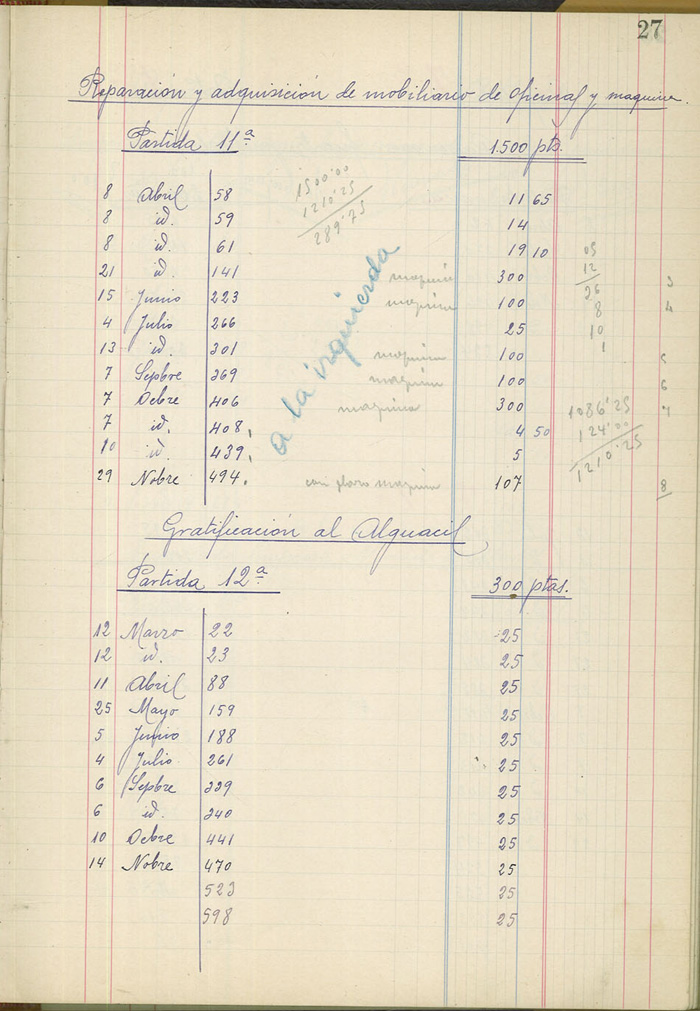 27
Reparación y adquisición de mobiliario de oficinas y maquina.
Partida 11ª 1.500 pts.
8 Abril 58 11 65
8 id. 59 14
8 id. 61 19 10
21 id. 141 maquina 300 3
15 Junio 223 maquina 100 4
4 Julio 266 25
13 id. 301 maquina 100 5
7 Sepbre 369 maquina 100 6
7 Octbre 406 maquina 300 7
7 id. 408. 4 50
10 id. 439. 5
29 Nobre 494. maquina 107 8
1500'00
1210'25
289'75
a la izquierda
05
12
26
8
10
1
1086'25
124'00
1210'25
Gratificación al Alguacil
Partida 12ª 300 ptas.
12 Marzo 22 25
12 id. 23 25
11 Abril 88 25
25 Mayo 159 25
5 Junio 188 25
4 Julio 261 25
6 Sepbre 339 25
6 id. 340 25
10 Octbre 441 25
14 Nobre 470 25
523 25
598 25